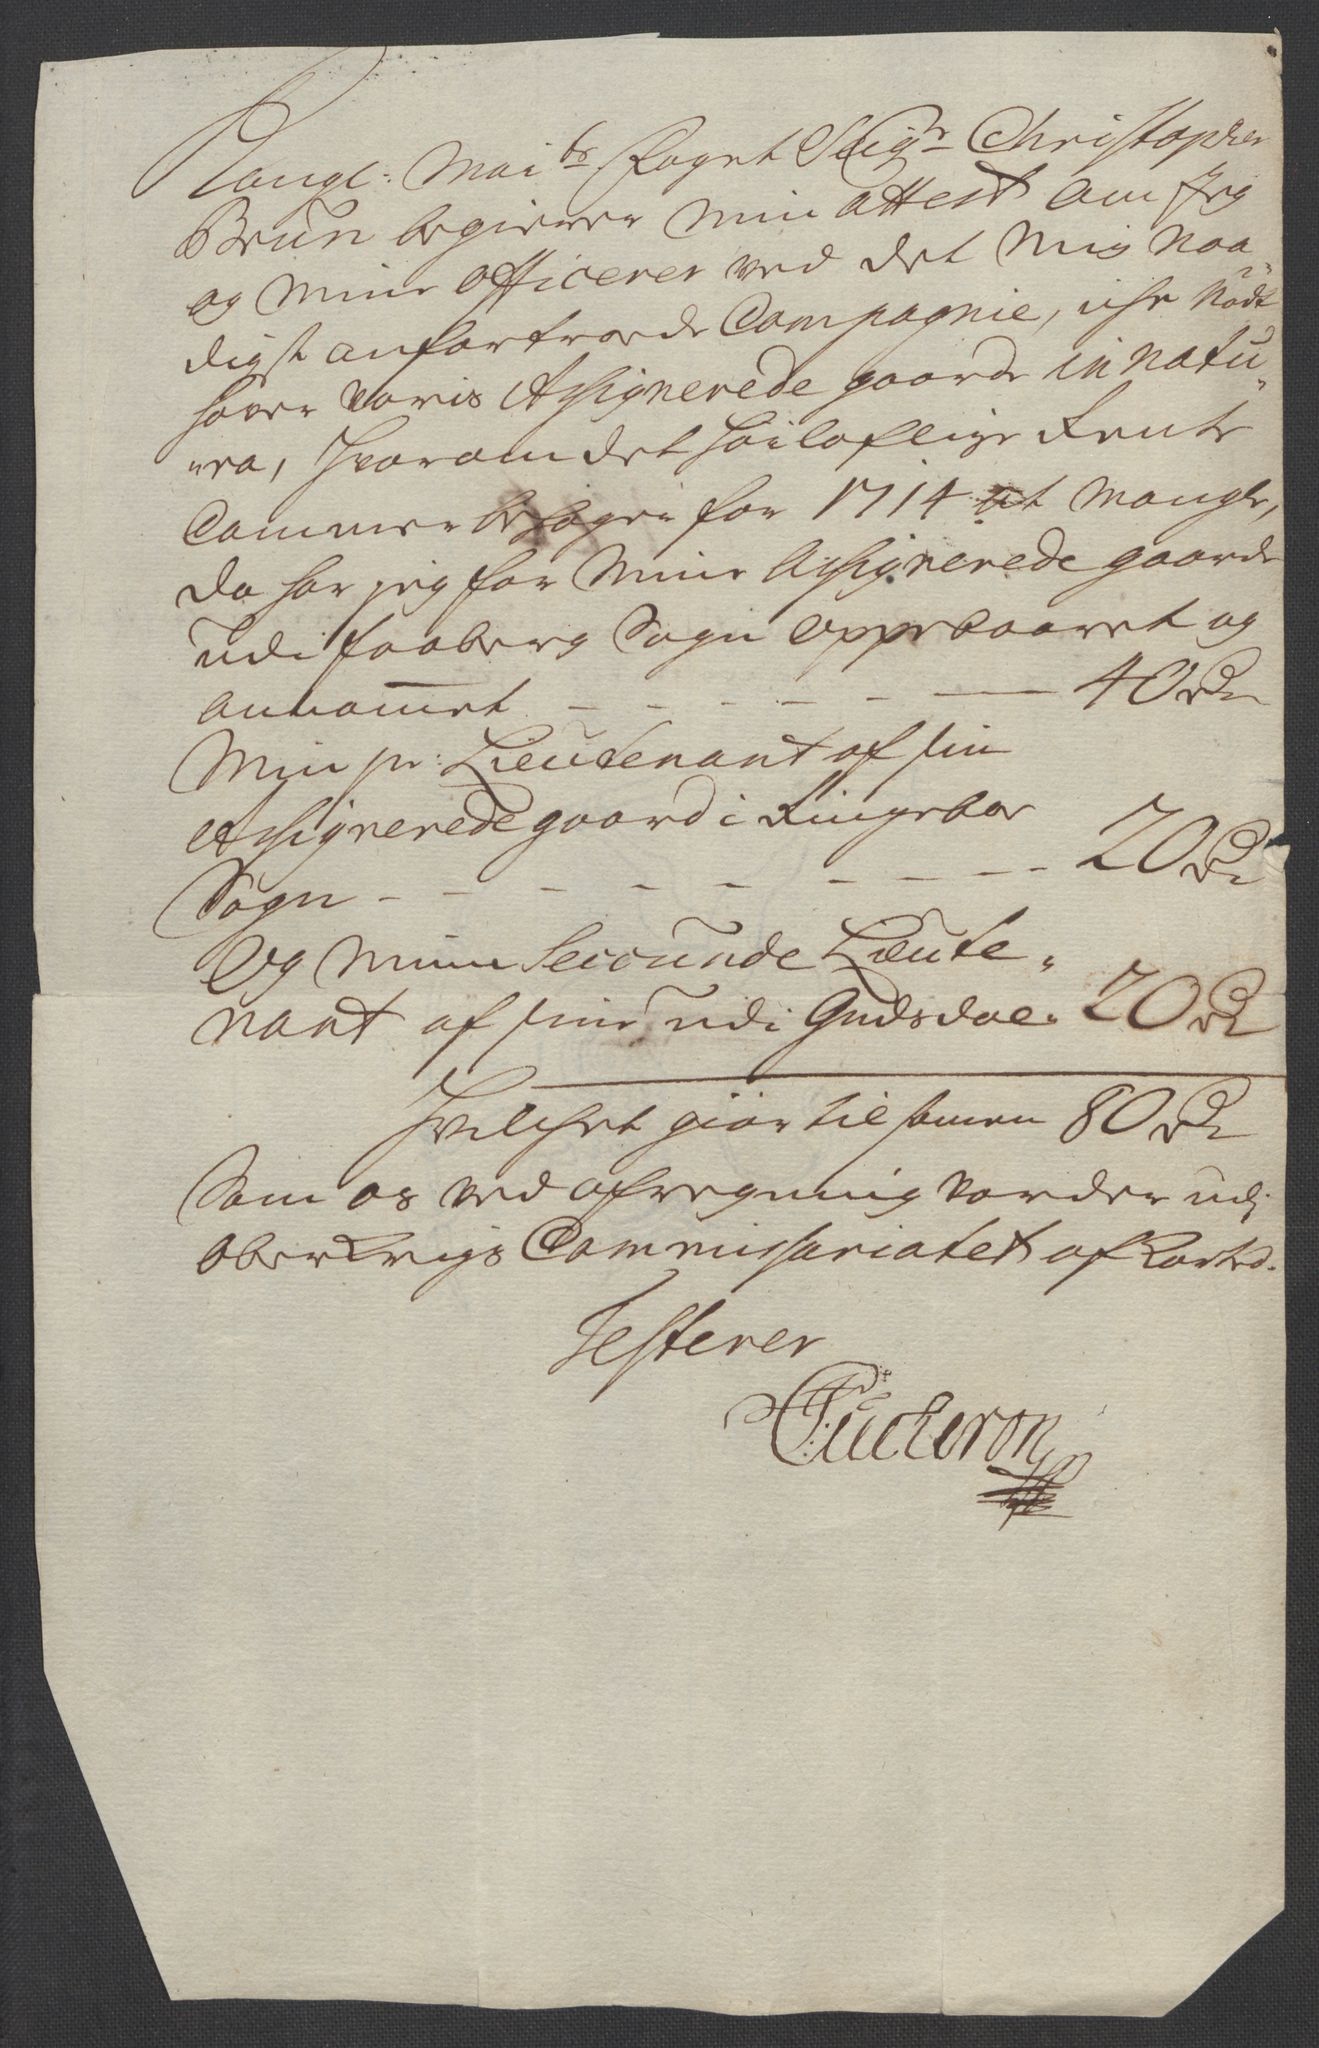 Kongl: Mai:ts Foget Seigr Christopher
Brun begierer min attest om Jeg
og mine officerer ved det mig naa„
digst anfortroede Compagnie, ichr nødt
hafver voris Assignerede gaarde in natu„
„ra, hvorom det høiloflige Rente
Cammer besøger for 1714 at mangle,
da har jeg for mine Assignerede gaarde
udi faaberg Sogn oppebaaret og
annammet - - - - - - 40 Rdr
Min pr: Lieutenant af sin
Assignerede gaard i Ringeboe
Sogn - - - - - - - - 20 Rd
Og minn Seccunde Lieute„
nant af sine udi Gudsdal. 20 Rd
Hvilchet giør tilsamen 80 Rd
Som os ved afregning vorder udi
Ober Krigs Commissariatet af Korted.
Testerer
Tucheron